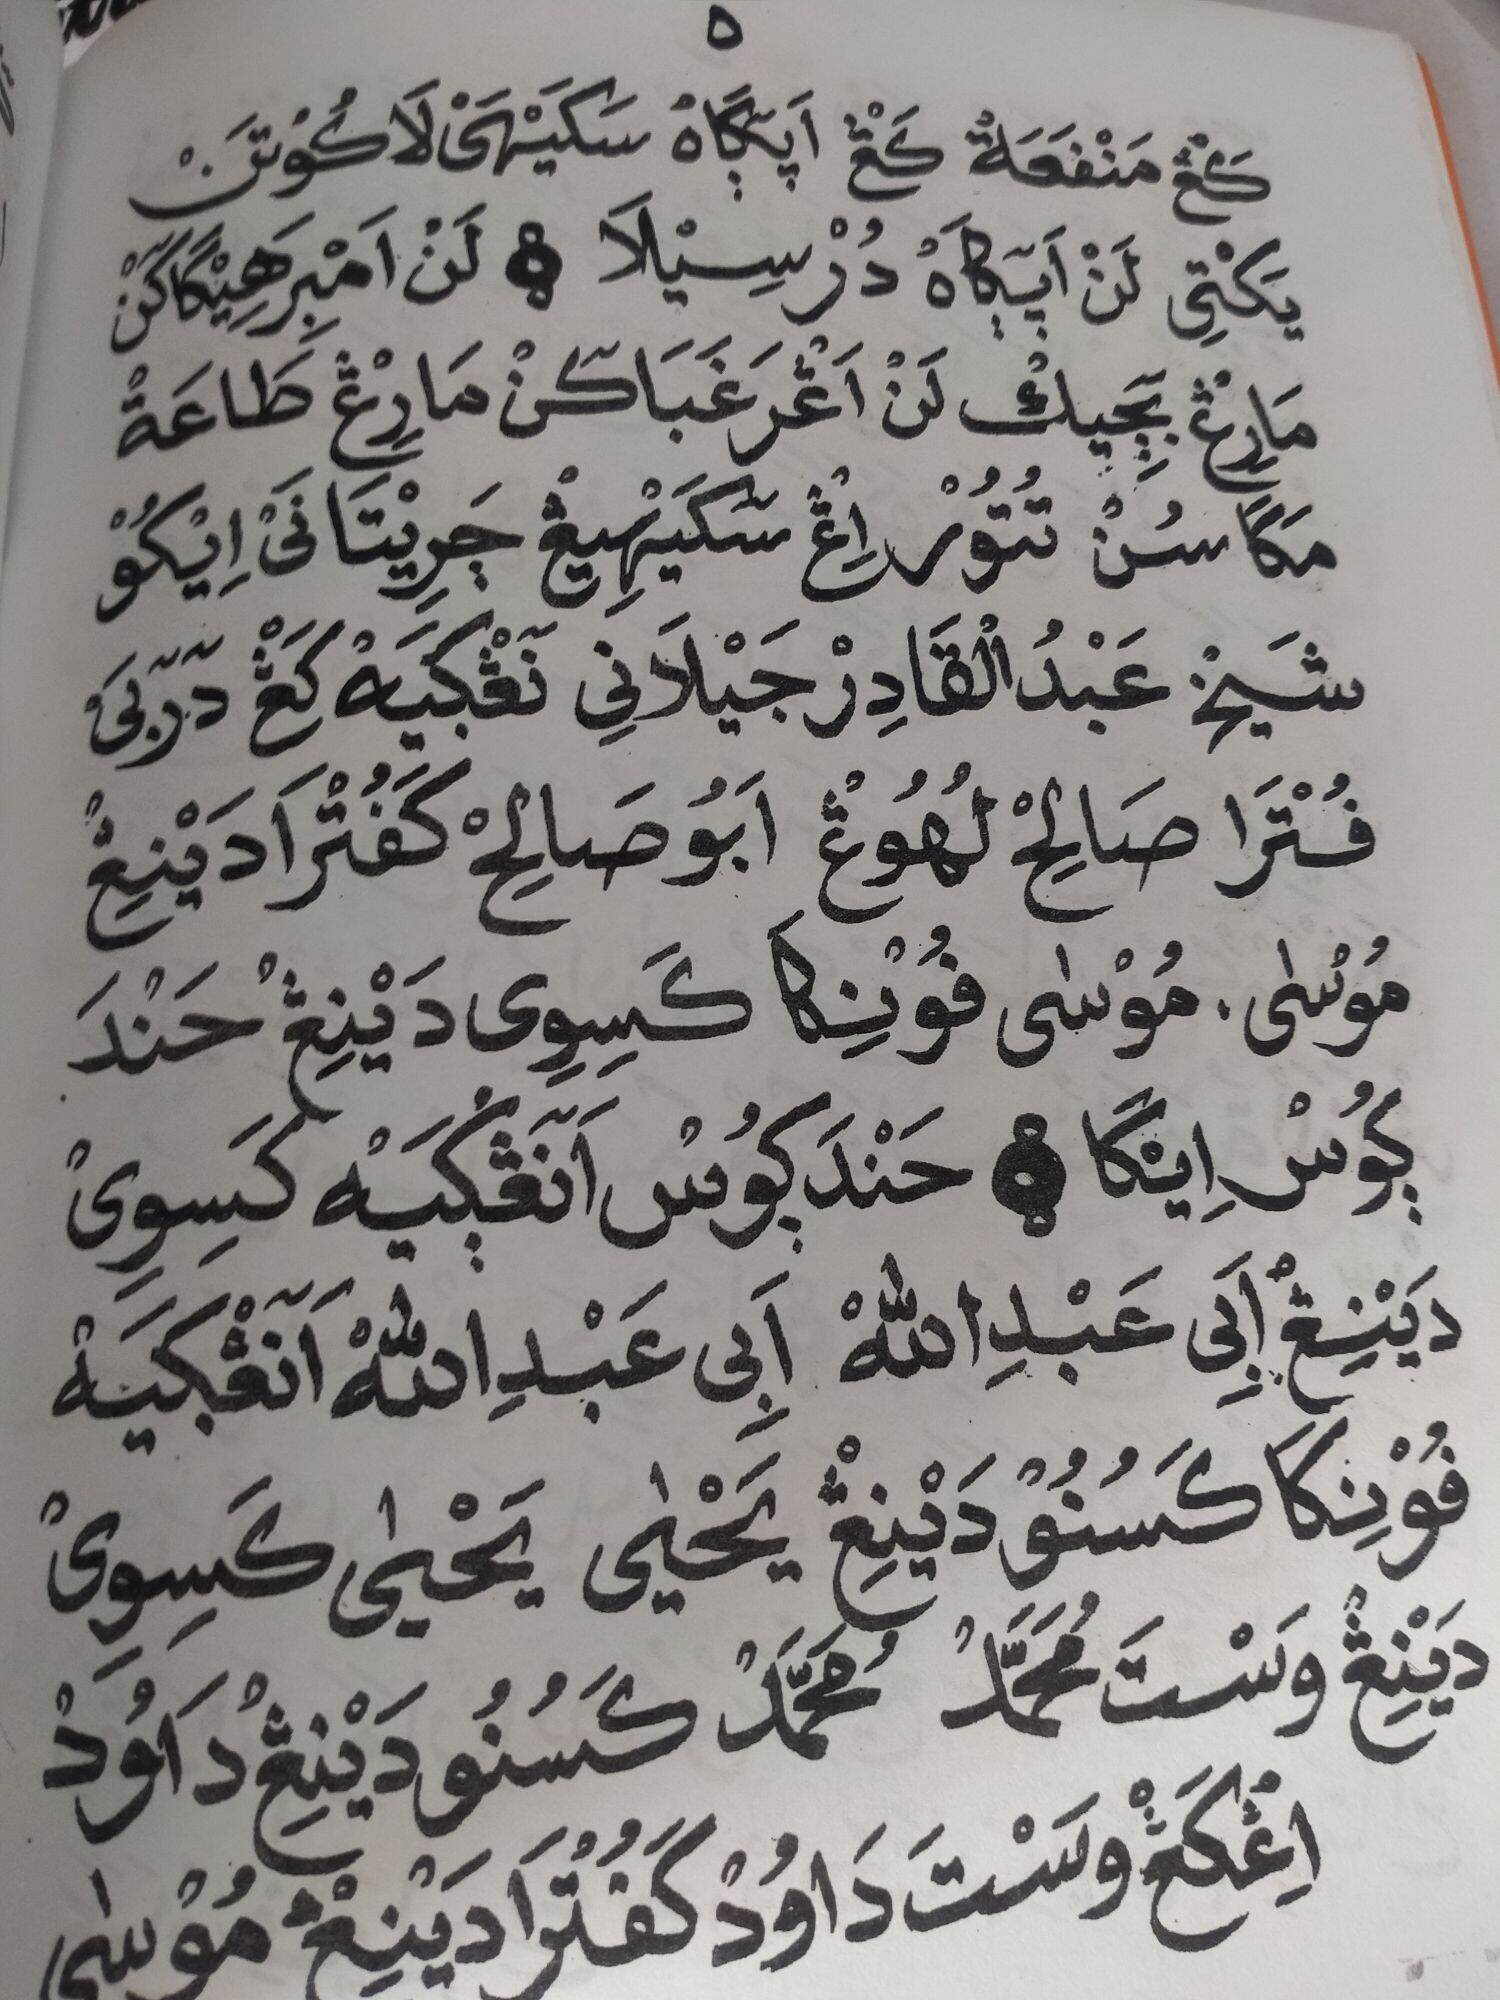 ٥
كَڠْ مَنْفَعَةْ كَڠْ اَپٓݢَاهْ سَكَيٓهَيْ لَاكُوْنَنْ
يَكْتِي لَنْ اَپٓݢَاهْ دُرْسِيْلَا ۞ لَنْ اَمْبِرَهِيْكَاكٓنْ
مَارِڠْ بٓچِيكْ لَنْ اَڠْرَغَبَاكٓنْ مَارِڠْ طَاعَةْ
مَكَا سُنْ تُتُوْرْ اِڠْ سَكَيٓهِيڠْ چَرِيْتَانَيْ اِيْكُوْ
شَيخْ عَبْدُ الْقَادِرْ جَيْلَانِي نٓڠْݢَيَهْ كَڠْ دٓرْبَيْ
فُتْرَا صَالِحْ لُهُوْڠْ اَبُوْ صَالِحْ كَفُتْرَا دَيْنِڠْ
مُوْسٰى. مُوْسٰى فُوْنِكَا كَسِوِى دَيْنِڠْ حَنْدَ
ݢُوْسْ اِيْكَا ۞ حَنْدَ ݢُوْسْ اَنٓڠْݢَيَهْ كَسِوِيْ
دَيْنِڠْ اَبِي عَبْدِ اللهْ اَبِي عَبْدِ اللهْ اَنٓڠْݢَيَهْ
فُوْنِكَا كَسُنُوْ دَيْنِڠْ يَحْيٰى يَحْيٰى كَسِوِيْ
دَيْنِڠْ وَسْتَ مُحَمَّدْ مُحَمَّدْ كَسُنُو دَيْنِڠْ دَاوُدْ
اِڠْكَڠْ وَسْتَ دَاوُدْ كَفُتْرَا دَيْنِڠْ مُوْسٰى